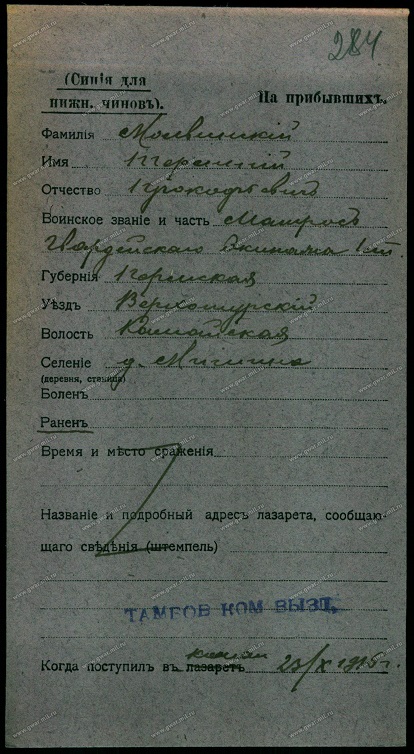 284
(Синія для
нижн. чиновъ).
На прибывшихъ.
Фамилія
Имя
Отчество Прокофьевичъ
Воинское званіе и часть Матросъ
Гвардейскаго Экипажа 1 ст.
Губернія Пермская
Уѣздъ Верхотурскій
Волость
Селеніе д. Мишина
(деревня, станица)
Боленъ
Раненъ
Время и мѣсто сраженія
Названіе и подробный адресъ лазарета, сообщаю-
щаго свѣдѣнія (штемпель)
ТАМБОВ КОМ ВЫЗД.
Когда поступилъ въ лазаретъ 23/X 1915 г.
www.gwar.mil.ru